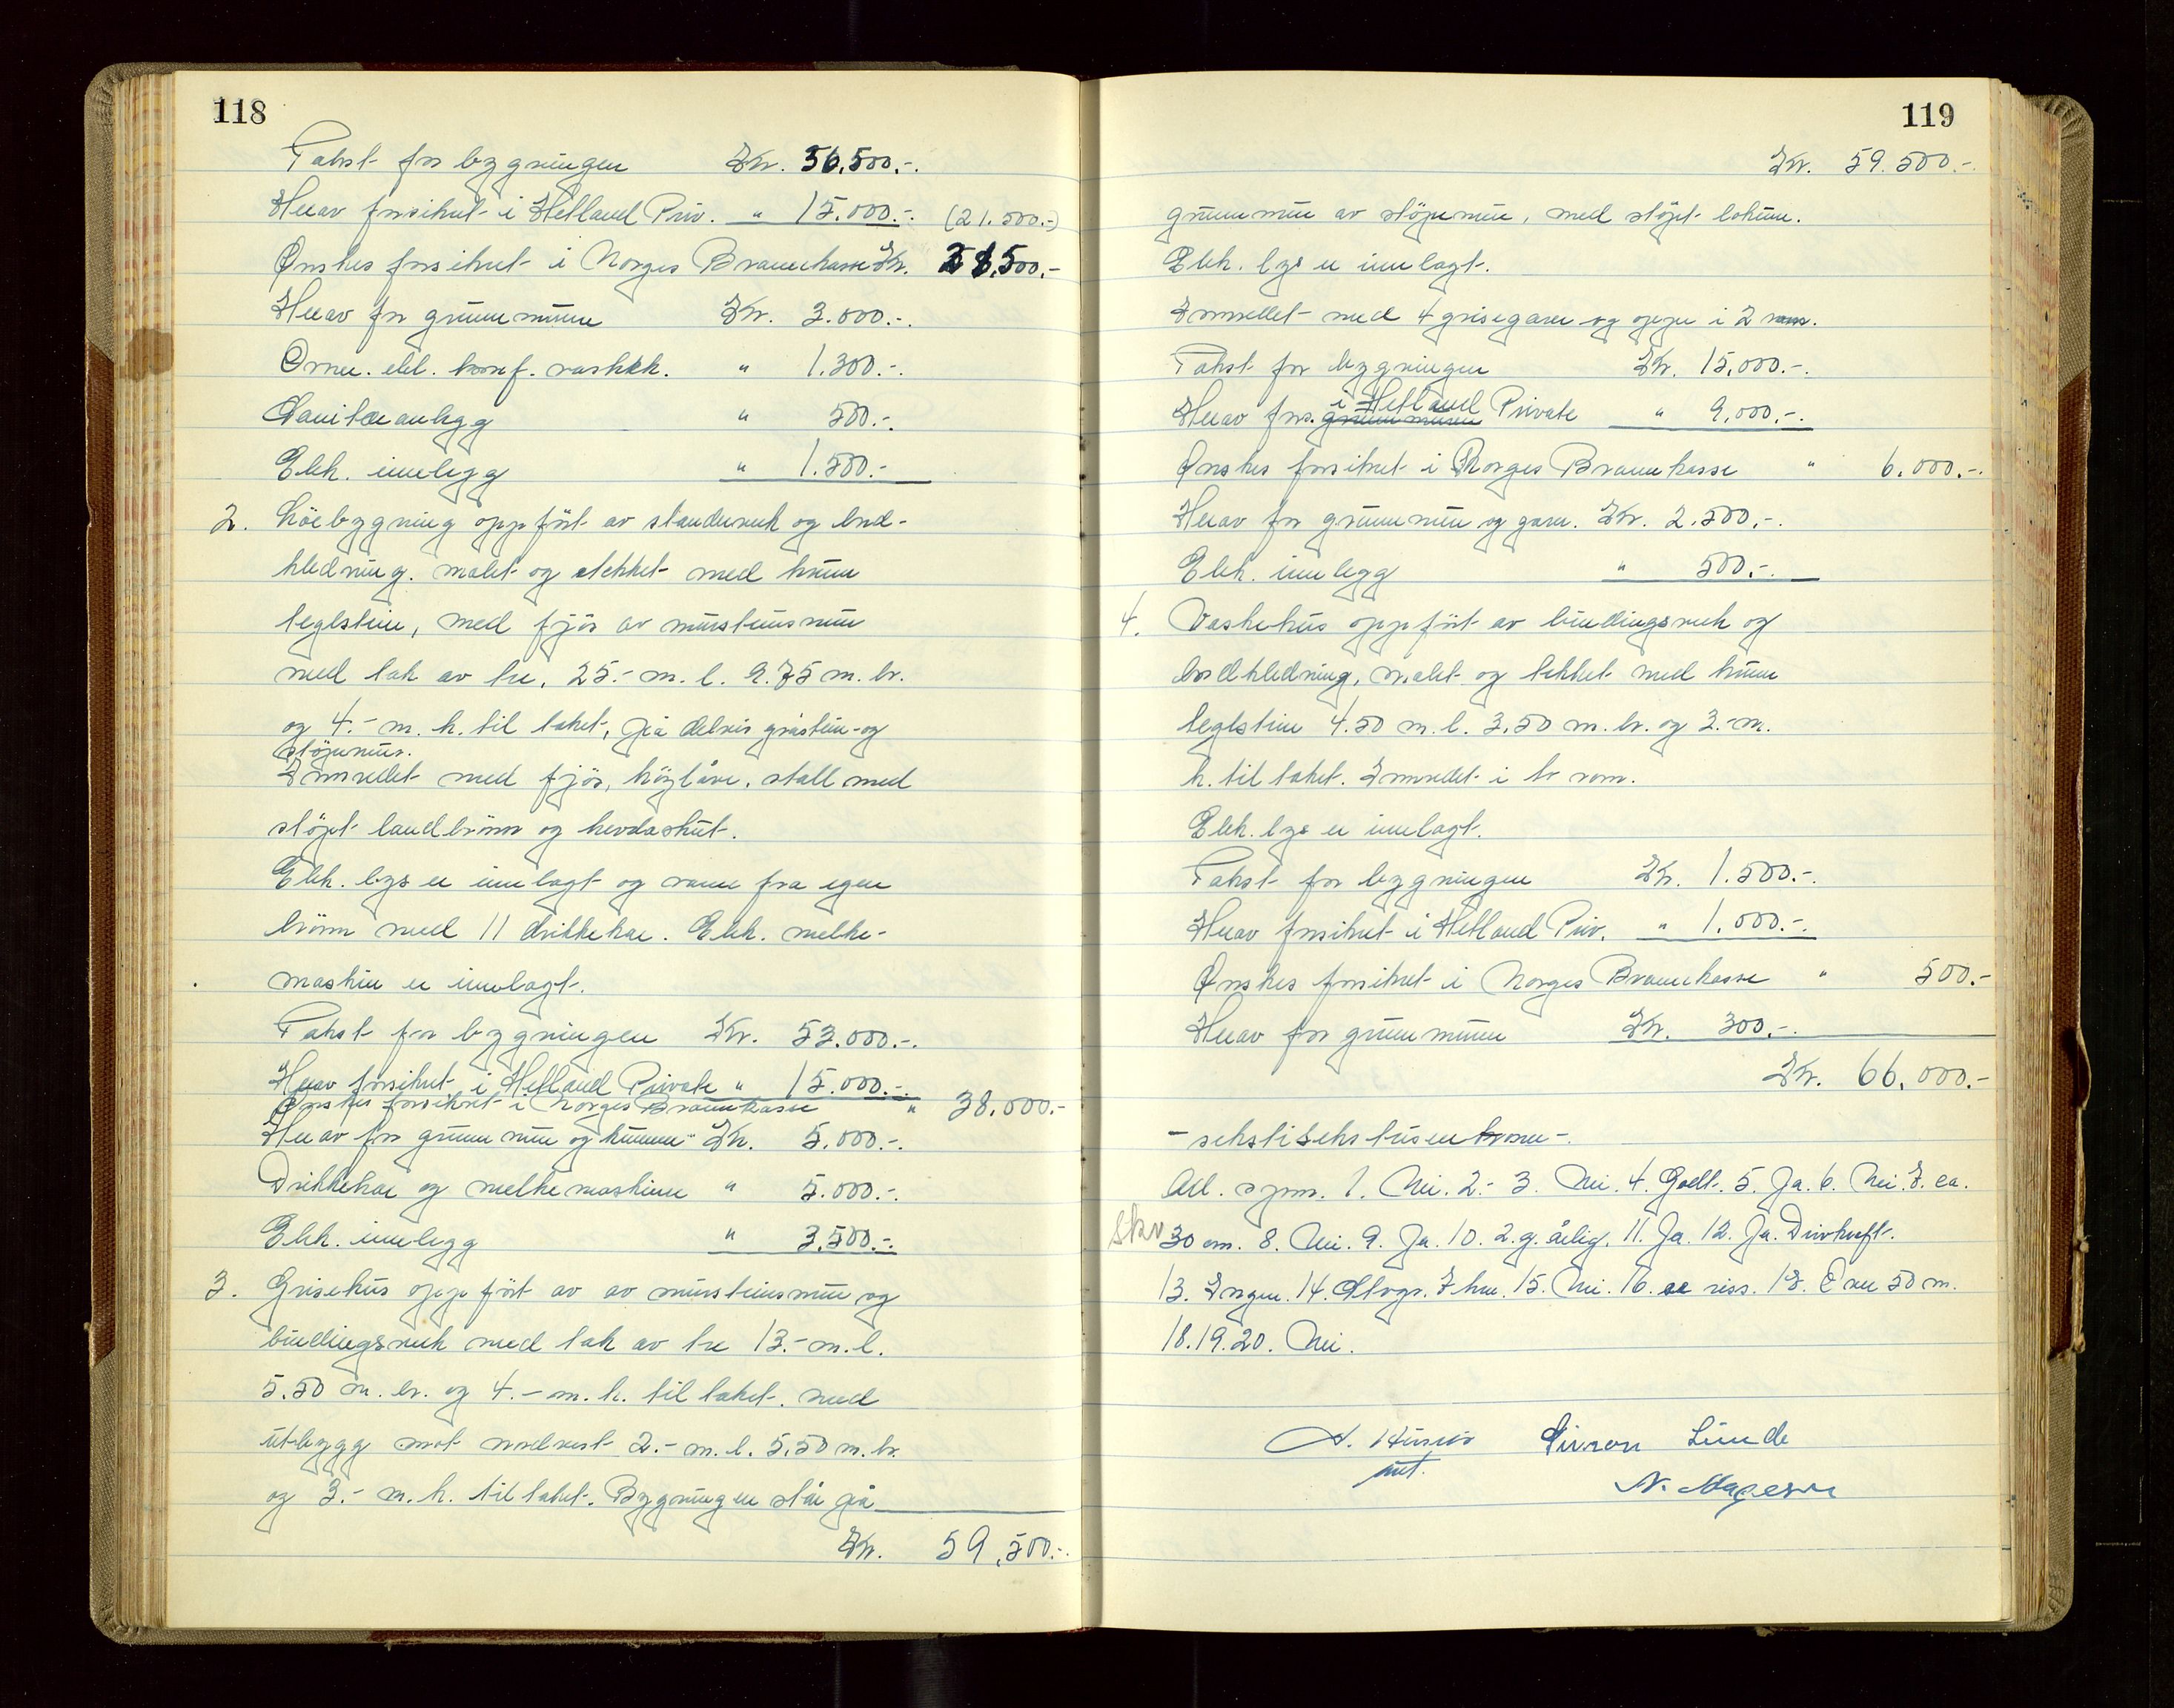 118
Takst for bygningen Kr. 36,500.-.
Herav forsikret i Hetland Priv. " 15.000.-. (21.500.-)
Ønskes forsikret i Norges Brannkasse Kr. 21,500.-
Herav for grunnmuren Kr. 3.000.-.
Ovner. ell. komf. vaskek. " 1.300.-.
Sanitæranlegg " 500.-.
Elek. innlegg " 1.500.-
2. Löebygning oppfört av stenderverk og bord-
kledning. malet og tekket med krum
teglstein, med fjös av murstensmur
med tak av tre, 25.- m. l. 9.75 m. br.
og 4.- m. h. til taket, på delvis gråstein- og
stöpemur.
Innredet med fjös, höylåve, stall med
stöpt landbrönn og hevdaskut.
Elek. lys er innlagt og vann fra egen
brönn med 11 drikkekar. Elek. melke-
maskin er innlagt.
Takst for bygningen Kr. 53.000.-.
Herav forsikret i Hetland Private " 15.000.-.
Ønskes forsikret i Norges Brannkasse " 38.000.-
Herav for grunnmur og kummer Kr. 5.000.-.
Drikkekar og melkemaskinen " 5.000.-.
Elek. innlegg " 3,500.-.
3. Grisehus oppfört av av murstensmur og
bindingsverk med tak av tre 13.- m. l.
5.50 m. br. og 4.- m. h. til taket. med
utbygg mot nordvest 2.- m. l. 5,50 m. br.
og 3.- m. h. til taket. Bygningen står på
Kr. 59,500.-.
119
Kr. 59.500.-.
grunnmur av stöpemur, med stöpt lokum.
Elek. lys er innlagt.
Innredet med 4 grisegarer og oppe i 2 rom.
Takst for bygningen Kr. 15,000.-.
i Hetland
Herav fors. grunnmuren Private " 9,000.-.
Ønskes forsikret i Norges Brannkasse " 6.000.-.
Herav for grunnmur og garer. Kr. 2.500.-.
Elek. innlegg " 500.-.
4. Vaskehus oppfört av bindingsverk og
bordkledning, malet og tekket med krum
teglstein 4.50 m. l. 3,50 m. br. og 3.- m.
h. til taket. Innredet i to rom.
Elek. lys er innlagt.
Takst for bygningen Kr. 1.500.-.
Herav forsikret i Hetland Priv. " 1.000.-.
Ønskes forsikret i Norges Brannkasse " 500.-
Herav for grunnmuren Kr. 300.-.
Kr. 66,000.-
- sekstisekstusen kroner -.
All. spm. 1. Nei. 2.- 3. Nei. 4. Godt. 5. Ja. 6. Nei. 7. ca.
Skr 30 cm. 8. Nei. 9. Ja. 10. 2. g. årlig. 11. Ja. 12. Ja. Drivkraft.
13. Ingen. 14. Stvgr. 7 km. 15. Nei. 16. se riss. 17. Over 50 m.
18. 19. 20. Nei.
Simon Lunde